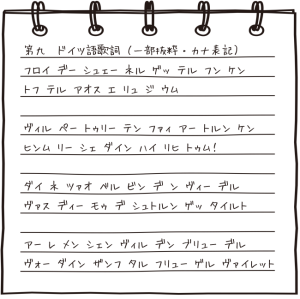 第九 ドイツ語歌詞 (一部抜粋・カナ表記)
フロイ デー シュェー ネル ゲッ テル フン ケン
トフ テル アオス エ リュ ジ ウム
ヴィル ペー トゥリー テン ファィ アー トルン ケン
ヒンム リー シェ ダイン ハイ リヒ トゥム!
ダイ ネ ツァオ ベル ビン デ ン ヴィー デル
ヴァス ディー モゥ デ シュトルン ゲッ タイルト
アー レ メン シェン ヴィル デン ブリュー デル
ヴォー ダイン ザンフ タル フリュー ゲル ヴァイレット